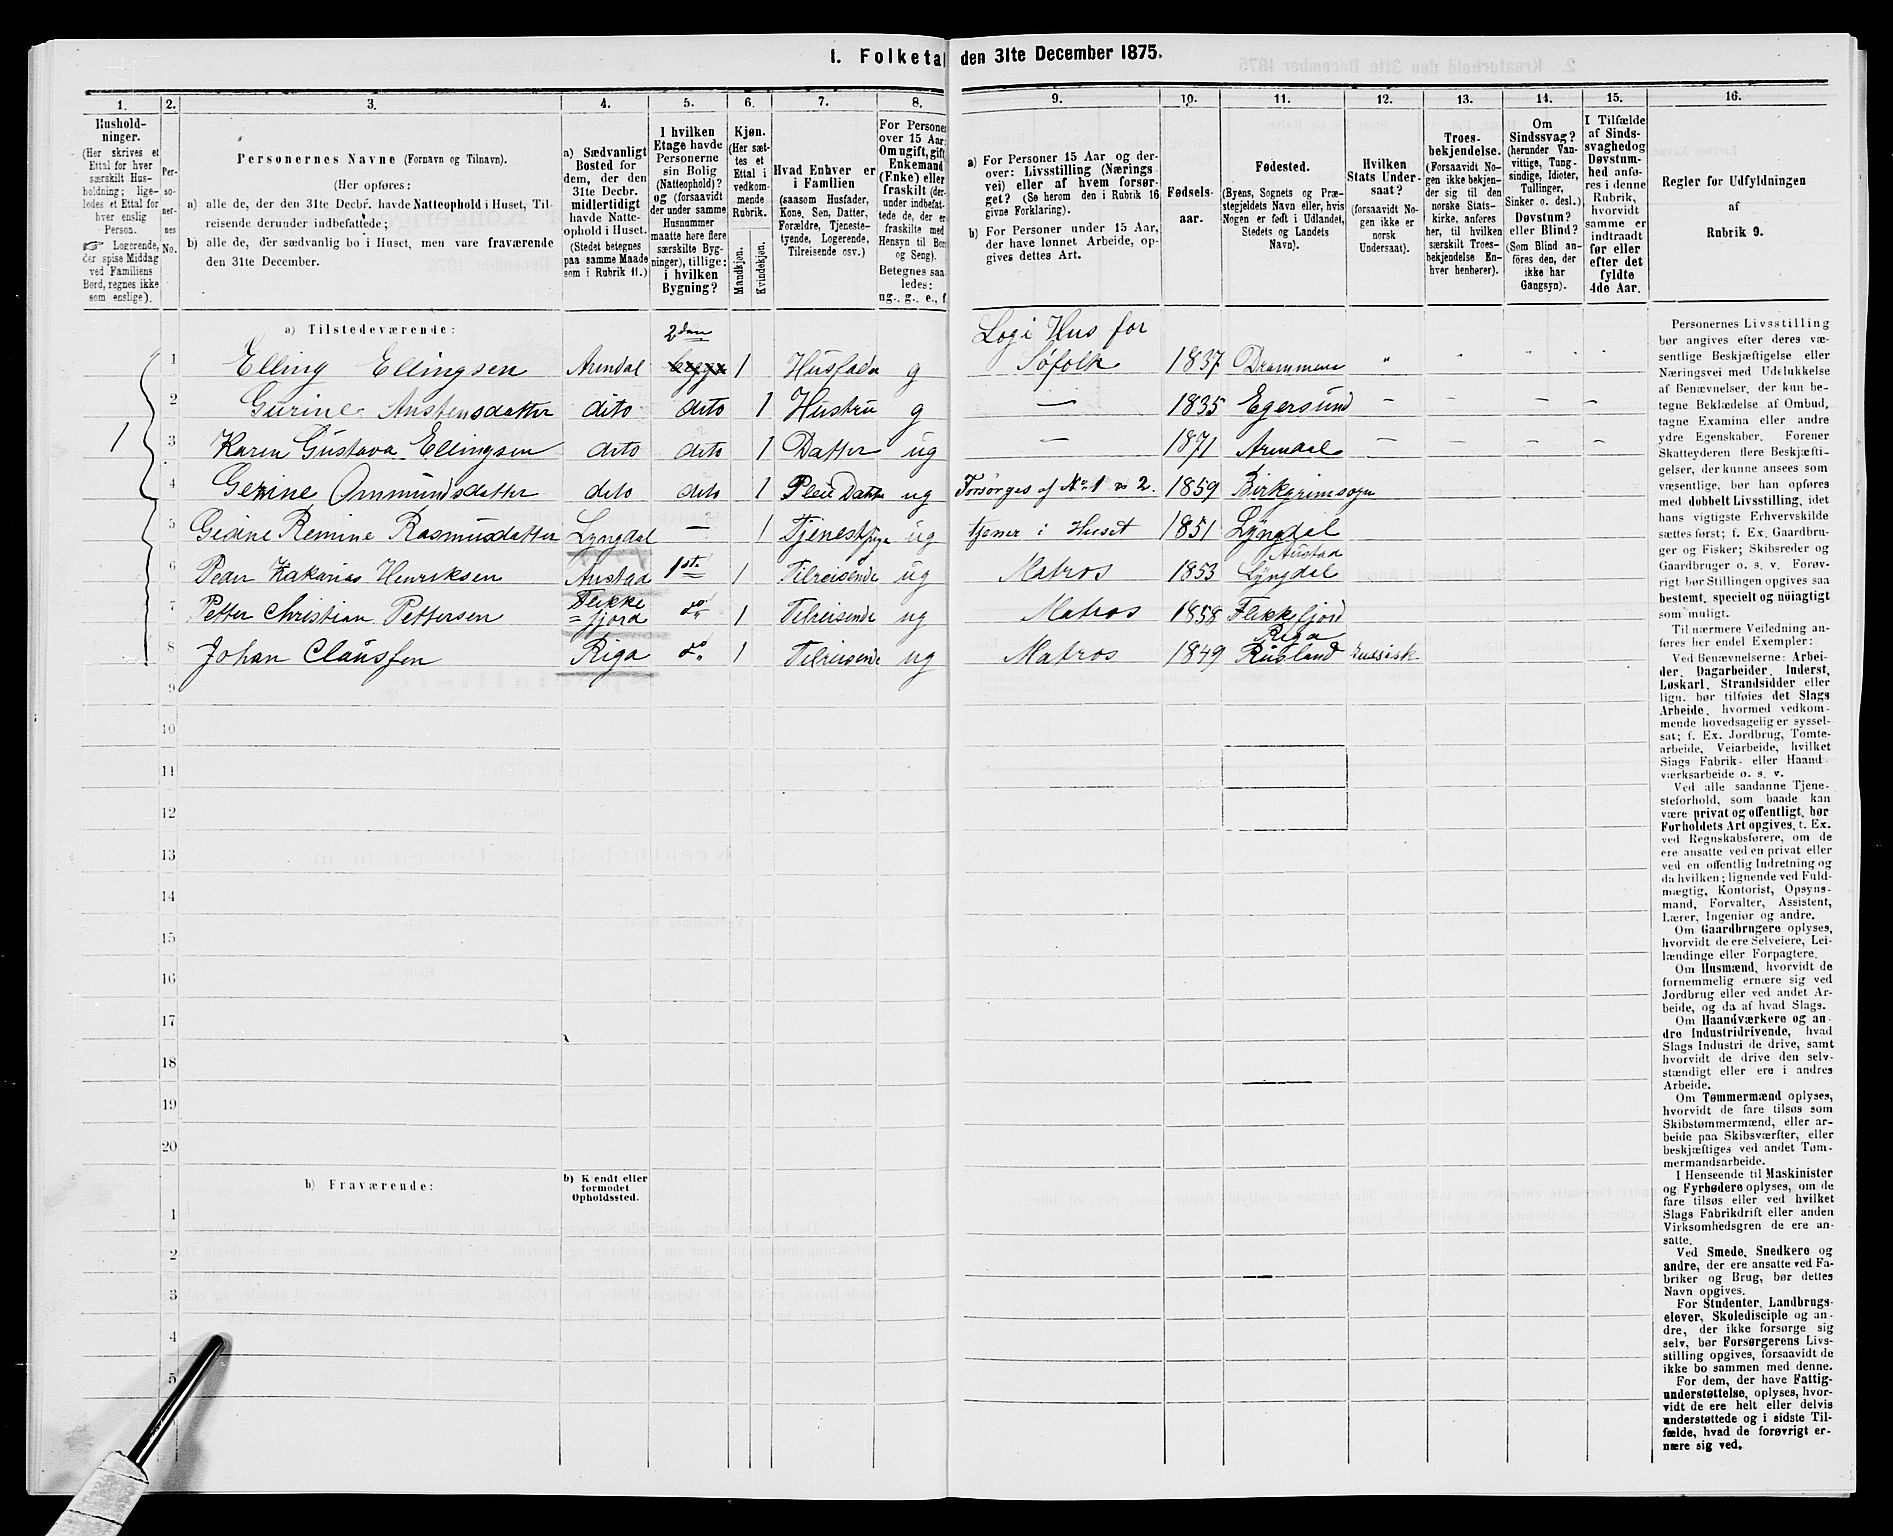 1. Folketal den 31te December 1875.
1. 2. 3. 4. 5. 6. 7. 8. 9. 10. 11. 12. 13. 14. 15. 16.
Hushold-
ninger.
(Her skrives et
Ettal for hver
særskilt Hus-
holdning; lige-
ledes et Ettal for
hver enslig
Person.
☞ Logerende,
der spise Middag
ved Familiens
Bord, regnes ikke
som enslige).
Per-
so-
ner-
nes
No.
Personernes Navne (Fornavn og Tilnavn).
(Her opføres:
a) alle de, der den 31te Decbr. havde Natteophold i Huset, Til-
reisende derunder indbefattede;
b) alle de, der sædvanlig bo i Huset, men vare fraværende
den 31te December.
a) Sædvanligt
Bosted for
dem, der den
31te Decbr.
midlertidigt
havde Natte-
ophold i Huset.
(Stedet betegnes
paa samme Maade
som i Rubrik 11.)
I hvilken
Etage havde
Personerne
sin Bolig
(Natteophold)?
og (forsaavidt
der under samme
Husnummer
maatte høre flere
særskilte Byg-
ninger), tillige:
i hvilken
Bygning?
Kjøn.
(Her sæt-
tes et
Ettal i
vedkom-
mende
Rubrik.
Mandkjøn.
Kvindekjøn.
Hvad Enhver er
i Familien
(saasom Husfader,
Kone, Søn, Datter,
Forældre, Tjeneste-
tyende, Logerende,
Tilreisende osv.)
For Personer
over 15 Aar:
Om ugift, gift,
Enkemand
(Enke) eller
fraskilt (der-
under indbefat-
tede de, der er
fraskilte med
Hensyn til Bord
og Seng).
Betegnes saa-
ledes:
ug., g., e., f.
a) For Personer 15 Aar og der-
over: Livsstilling (Nærings-
vei) eller af hvem forsør-
get? (Se herom den i Rubrik 16
givne Forklaring).
b) For Personer under 15 Aar,
der have lønnet Arbeide, op-
gives dettes Art.
Fødsels-
aar.
Fødested.
(Byens, Sognets og Præ-
stegjeldets Navn eller, hvis
Nogen er født i Udlandet,
Stedets og Landets
Navn).
Hvilken
Stats Under-
saat?
(forsaavidt No-
gen ikke er
norsk
Undersaat).
Troes-
bekjendelse.
(Forsaavidt No-
gen ikke bekjen-
der sig til den
norske Stats-
kirke, anføres
her, til hvilken
særskilt Troes-
bekjendelse En-
hver henhører).
Om
Sindssvag?
(herunder Van-
vittige, Tung-
sindige, Idioter,
Tullinger,
Sinker o. desl.)
Døvstum?
eller Blind?
(Som Blind an-
føres den, der
ikke har
Gangsyn).
I Tilfælde
af Sinds-
svaghed og
Døvstum-
hed anfø-
res i denne
Rubrik,
hvorvidt
samme er
indtraadt
før eller
efter det
fyldte
4de Aar.
Regler for Udfyldningen
af
Rubrik 9.
a) Tilstedeværende:
1 Elling Ellingsen Arendal 2den 1 Husfader g Logi Hus for Søfolk 1837 Drammen
2 Gurine Austensdatter dito dito 1 Hustru g — 1835 Egersund — — — —
1
3 Karen Gustava Ellingsen dito dito 1 Datter ug — 1871 Arendal — — — —
4 Gerine Ommundsdatter dito dito 1 Pleie Datter ug Forsørges af No 1 & 2. 1859 Birkgrimsogn
5 Gurine Remine Rasmusdatter Lyngdal — 1 Tjenestpige ug tjener i Huset 1851 Lyngdal
6 Peder Zakarias Henriksen Austad 1ste 1 Tilreisende ug Matros 1853 Austad Lyngdal
7 Petter Christian Pettersen Flekkefjord do 1 Tilreisende ug Matros 1858 Flekkefjord
8 Johan Claussen Riga do 1 Tilreisende ug Matros 1849 Riga Rusland Russisk
9
10
11
12
13
14
15
16
17
18
19
20
b) Fraværende:
b) Kjendt eller
formodet
Opholdssted.
1
2
3
4
5
Personernes Livsstilling
bør angives efter deres væ-
sentlige Beskjæftigelse eller
Næringsvei med Udelukkelse
af Benævnelser, der kun be-
tegne Beklædelse af Ombud,
tagne Examina eller andre
ydre Egenskaber. Forener
Skatteyderen flere Beskjæfti-
gelser, der kunne ansees som
væsentlige, bør han opføres
med dobbelt Livsstilling, idet
hans vigtigste Erhvervskilde
sættes først; f. Ex. Gaardbru-
ger og Fisker; Skibsreder og
Gaardbruger o. s. v. Forøv-
rigt bør Stillingen opgives saa
bestemt, specielt og nöiagtigt
som muligt.
Til nærmere Veiledning an-
føres her endel Exempler:
Ved Benævnelserne: Arbei-
der, Dagarbeider, Inderst,
Løskarl, Strandsidder eller
lign. bør tilføies det Slags
Arbeide, hvormed vedkom-
mende hovedsagelig er syssel-
sat; f. Ex. Jordbrug, Tomte-
arbeide, Veiarbeide, hvilket
Slags Fabrik- eller Haand-
værksarbeide o. s. v.
Ved alle saadanne Tjene-
steforhold, som baade kan
være privat og offentligt, bør
Forholdets Art opgives, t. Ex.
ved Regnskabsførere, om de
ere ansatte ved en privat eller
ved en offentlig Indretning og
da hvilken; lignende ved Fuld-
mægtig, Kontorist, Opsyns-
mand, Forvalter, Assistent,
Lærer, Ingeniør og andre.
Om Gaardbrugere oplyses,
hvorvidt de ere Selveiere, Lei-
lændinge eller Forpagtere.
Om Husmænd, hvorvidt de
fornemmelig ernære sig ved
Jordbrug eller ved andet Ar-
beide, og da af hvad Slags.
Om Haandværkere og an-
dre Industridrivende, hvad
Slags Industri de drive, samt
hvorvidt de drive den selv-
stændigt eller ere i andres
Arbeide.
Om Tømmermænd oplyses,
hvorvidt de fare tilsøs som
Skibstømmermænd, eller ar-
beide paa Skibsværfter, eller
beskjæftiges ved andet Tøm-
mermandsarbeide.
I Henseende til Maskinister
og Fyrbødere oplyses, om de
fare tilsøs eller ved hvilket
Slags Fabrikdrift eller anden
Virksomhedsgren de ere an-
satte.
Ved Smede, Snedkere og
andre, der ere ansatte ved Fa-
briker og Brug, bør dettes
Navn opgives.
For Studenter, Landbrugs-
elever, Skoledisciple og an-
dre, der ikke forsørge sig
selv, bør Forsørgerens Livs-
stilling opgives, forsaavidt de
ikke bo sammen med denne.
For dem, der have Fattig-
understøttelse, oplyses, hvor-
vidt de ere helt eller delvis
understøttede og i sidste Til-
fælde, hvad de forøvrigt er-
nære sig ved.